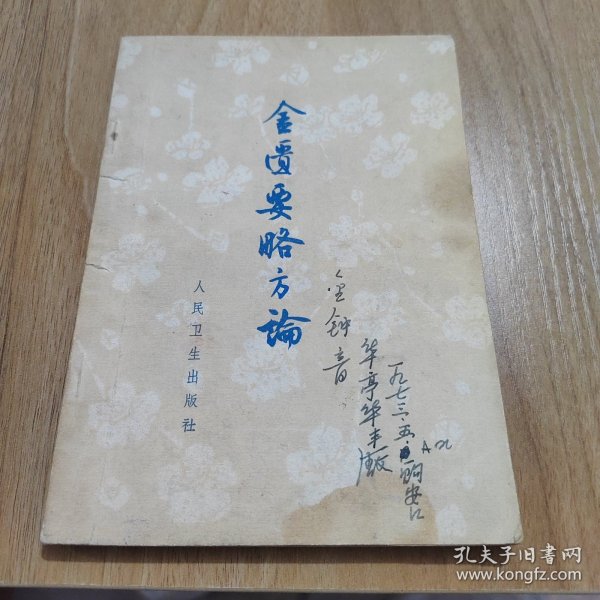 金匮要略方論
人民卫生出版社
金钟音
华亭华丰廠
一九七三.五.购安口
孔夫子旧书网
www.kongfz.com